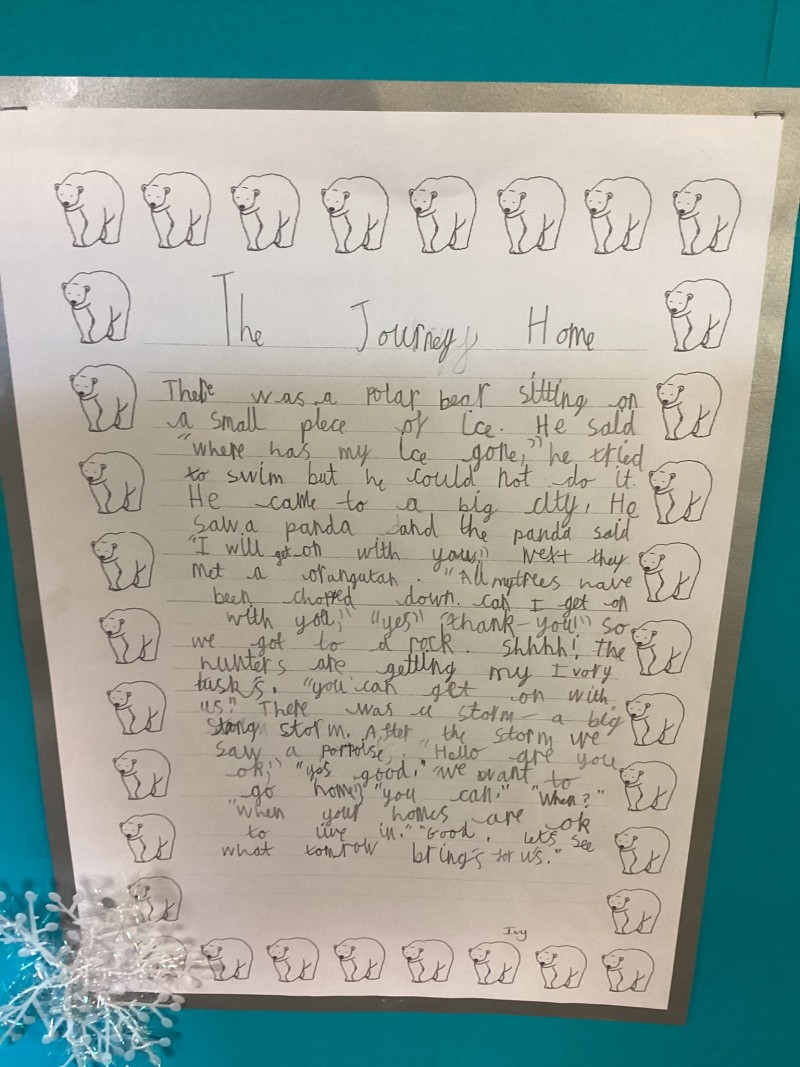 The Journey Home
There was a polar bear sitting on
a small piece of ice. He said
"where has my ice gone," he tried
to swim but he could not do it.
He came to a big city, He
saw a panda and the panda said
"I will get on with you" Next they
met a orangutan. "All my trees have
been chopped down. can I get on
with you," "yes" "thank-you!" so
we got to a rock. shhhh! the
hunters are getting my Ivory
tusks. "you can get on with
us." There was a storm - a big
storm. After the storm we
saw a porpoise. "Hello are you
ok," "yes good." "we want to
go home" "you can." "When?"
"when your homes are ok
to live in." "Good, let's see
what tomrow brings for us."
Ivy